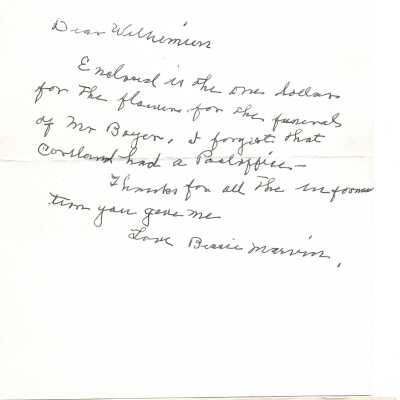 Dear Wilhemien
Enclosed is the one dollar
for the flowers for the funeral
of Mr Boyer, I forgot that
Cortland had a Postoffice -
Thanks for all the informa
tion you gave me
Love Bessie Marvin,